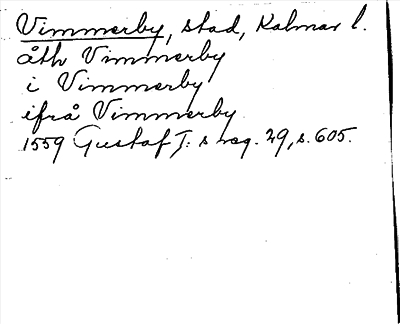 Vimmerby, stad, Kalmar l.
åth Vimmerby
i Vimmerby
ifrå Vimmerby
1559 Gustaf I:s reg. 29, s. 605.